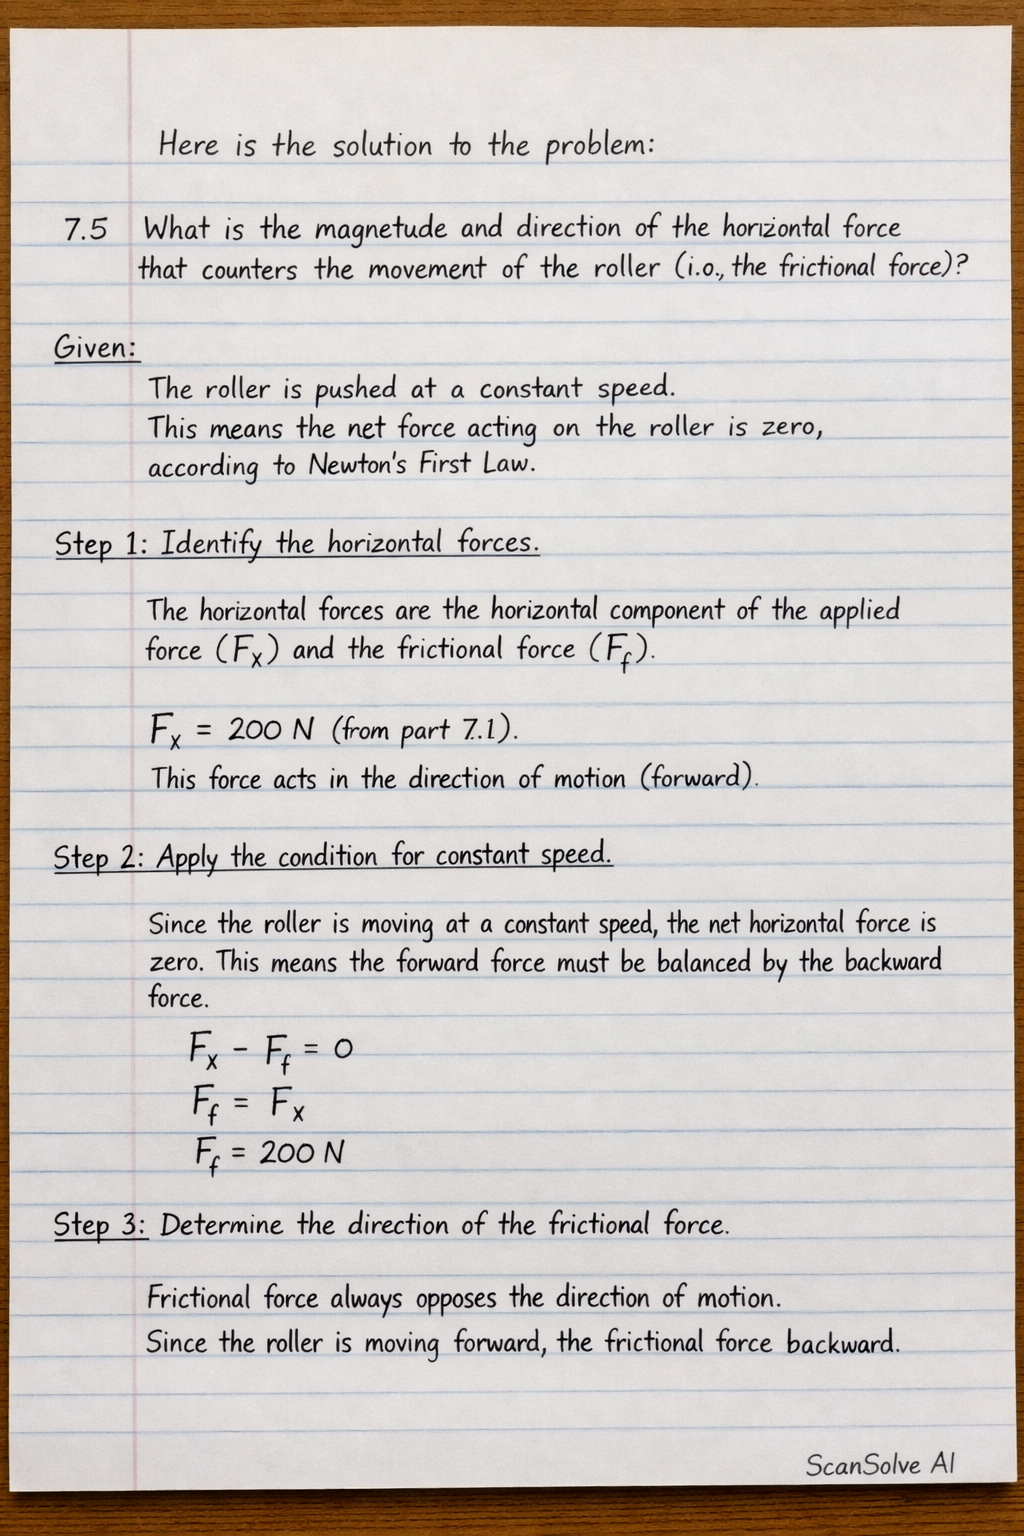 Here is the solution to the problem:
7.5 What is the magnetude and direction of the horizontal force
that counters the movement of the roller (i.o., the frictional force)?
Given:
The roller is pushed at a constant speed.
This means the net force acting on the roller is zero,
according to Newton's First Law.
Step 1: Identify the horizontal forces.
The horizontal forces are the horizontal component of the applied
force (Fₓ) and the frictional force (F_f).
Fₓ = 200 N (from part 7.1).
This force acts in the direction of motion (forward).
Step 2: Apply the condition for constant speed.
Since the roller is moving at a constant speed, the net horizontal force is
zero. This means the forward force must be balanced by the backward
force.
Fₓ - F_f = 0
F_f = Fₓ
F_f = 200 N
Step 3: Determine the direction of the frictional force.
Frictional force always opposes the direction of motion.
Since the roller is moving forward, the frictional force backward.
ScanSolve AI